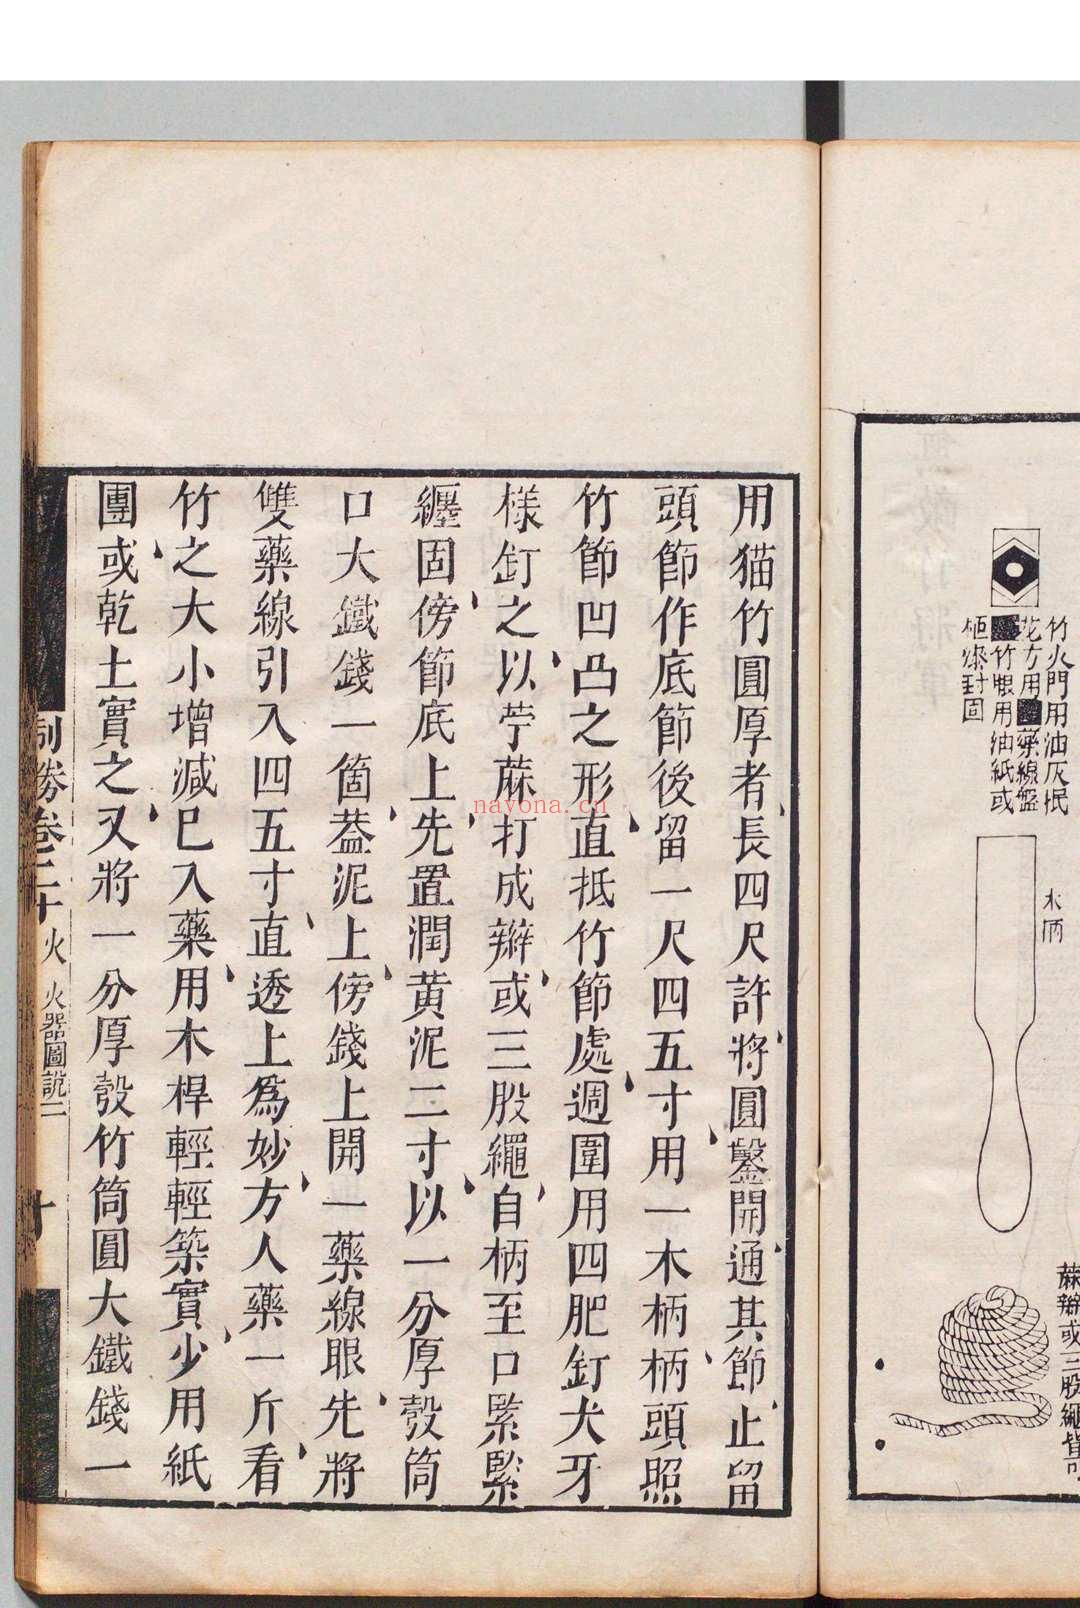 竹火門用油灰抿
花方用藥線盤
竹眼用油紙或
木柄
用猫竹圓厚者長四尺許將圓鑿開通其節止留
頭節作底節後留一尺四五寸用一木柄柄頭照
竹節凹凸之形直抵竹節處週圍用四肥釘犬牙
樣釘之以苧蔴打成辮或三股繩自柄至口緊緊
纏固傍節底上先置潤黄泥二寸以一分厚彀筒
口大鐵錢一箇葢泥上傍錢上開一藥線眼先將
雙藥線引入四五寸直透上爲妙方人藥一斤看
竹之大小增減巳入藥用木桿輕輕築實少用紙
團或乾土實之又將一分厚彀竹筒圓大鐵錢一
制勝卷二十 火 火器圖說二 十
nayona.cn